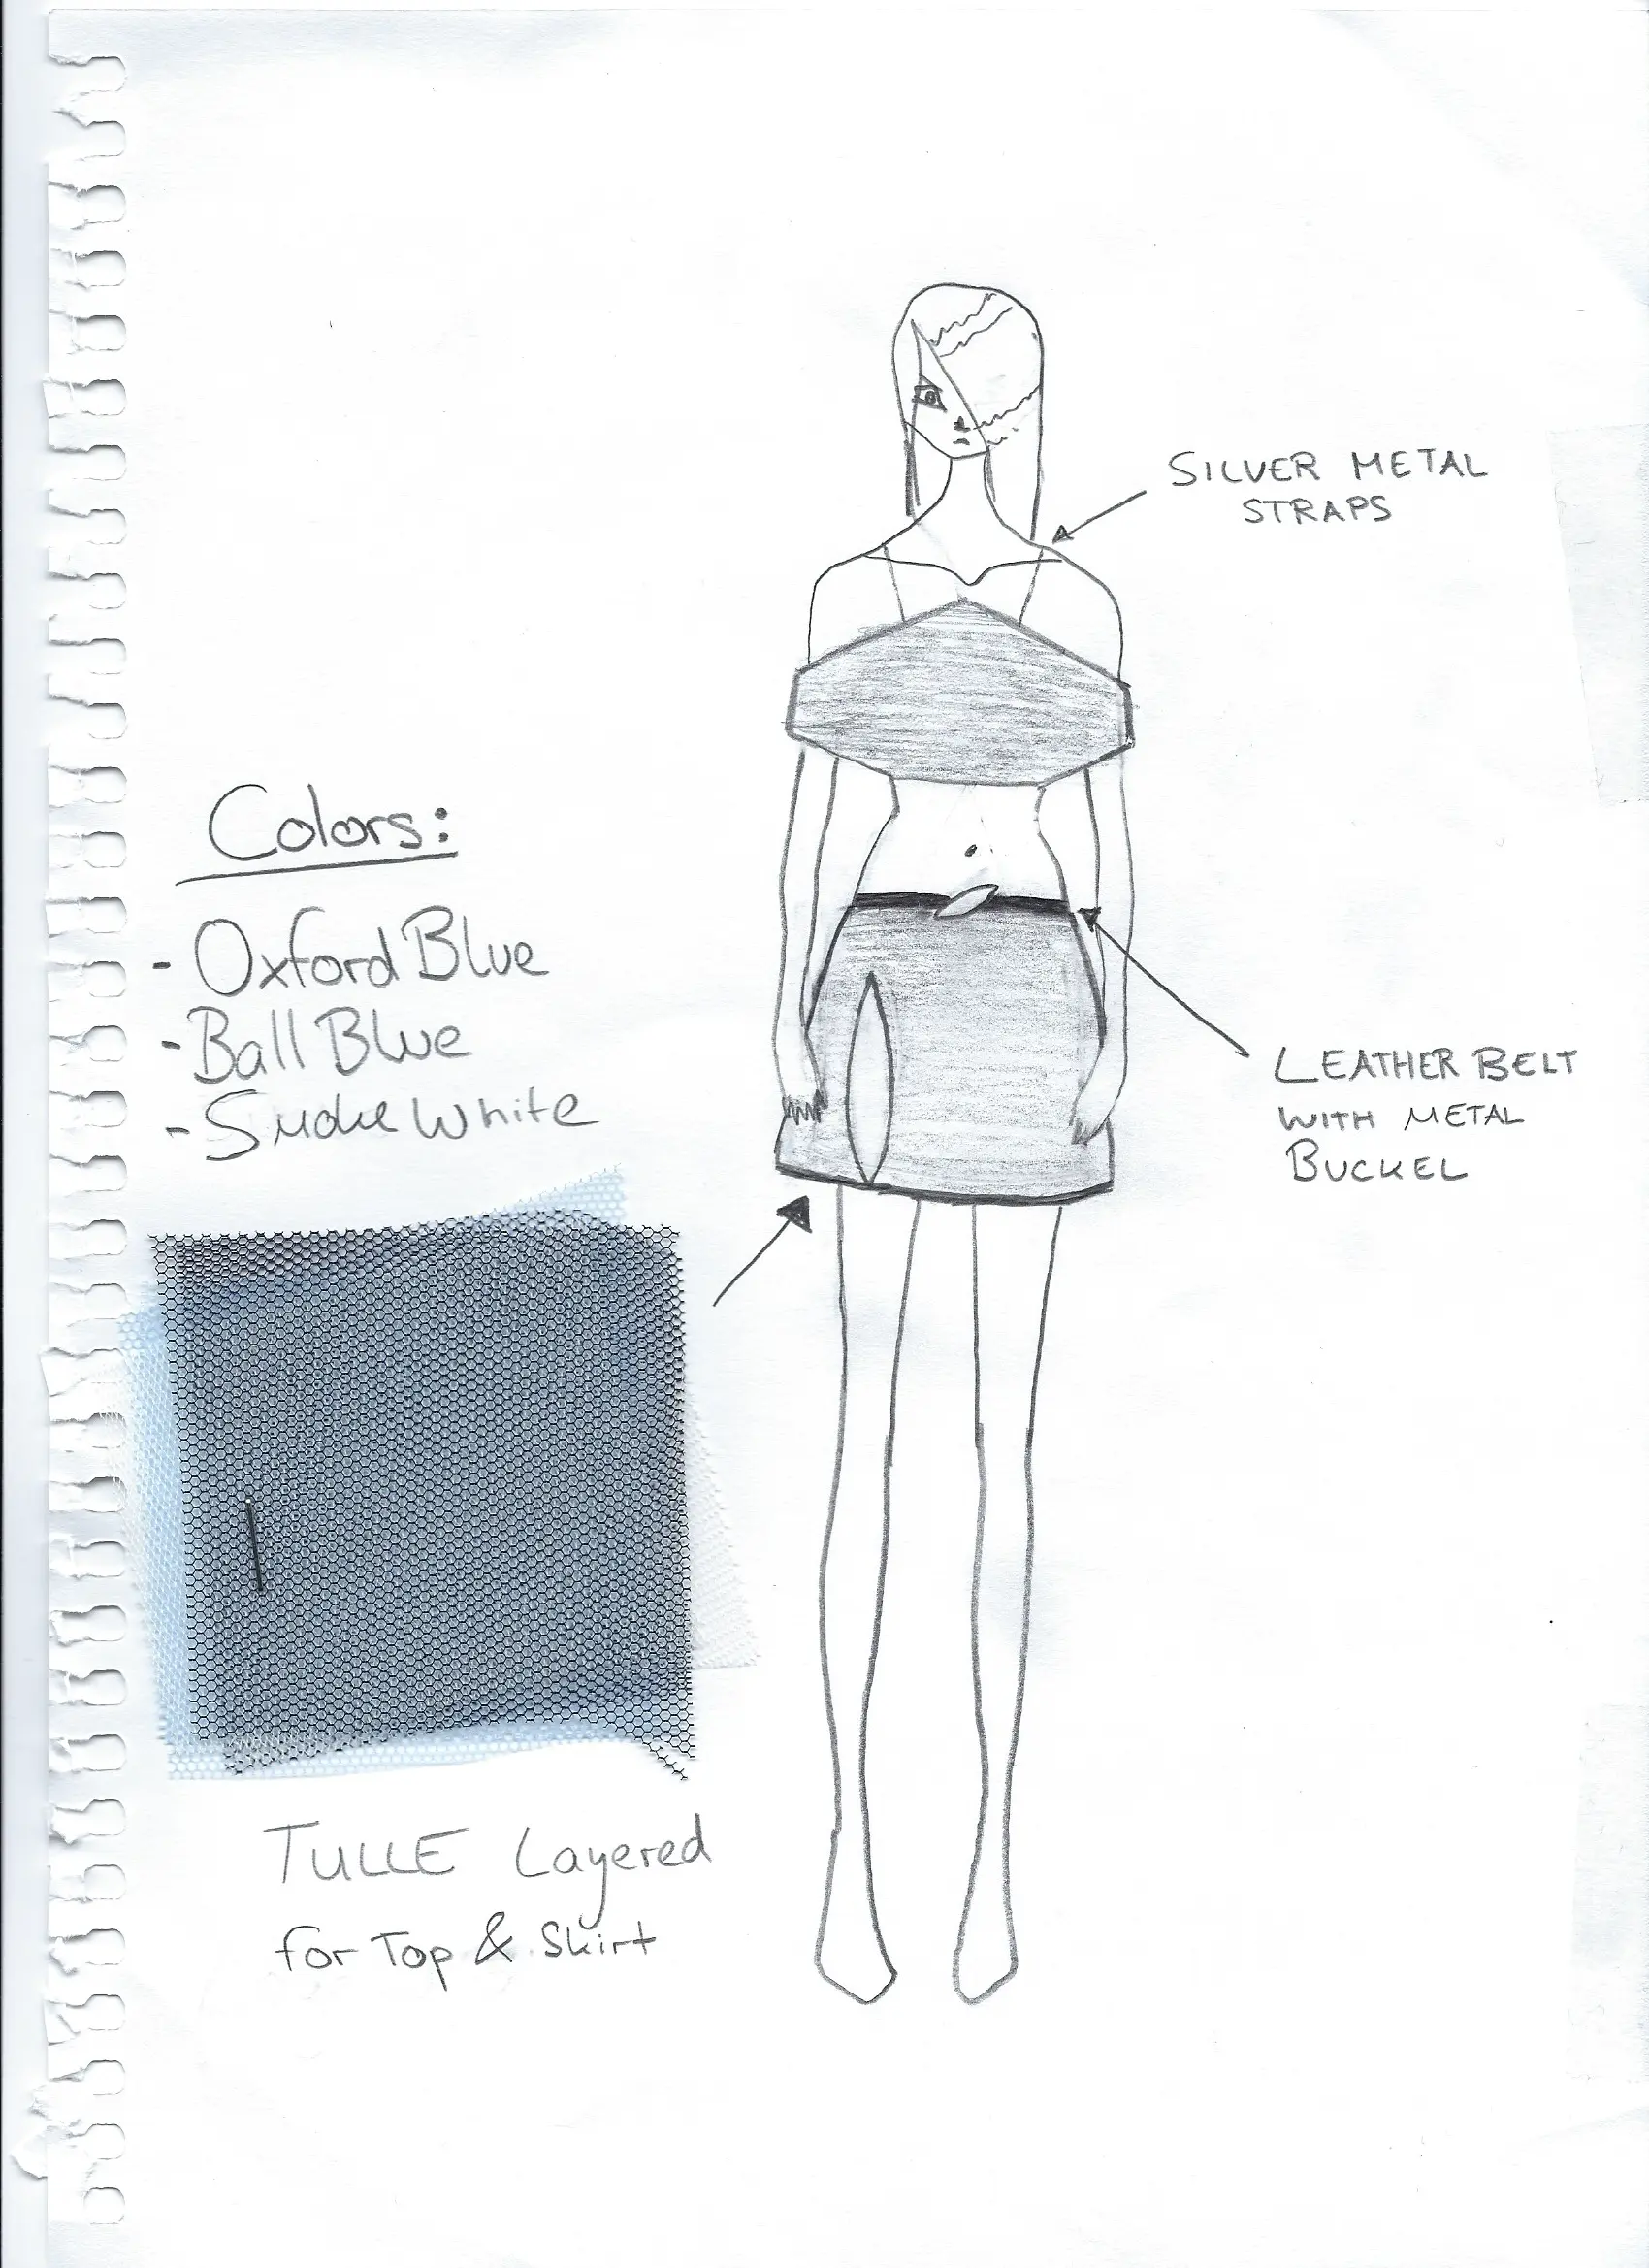 SILVER METAL
STRAPS
Colors:
- Oxford Blue
- Ball Blue
- Smoke White
LEATHER BELT
WITH METAL
BUCKEL
TULLE Layered
for Top & Skirt